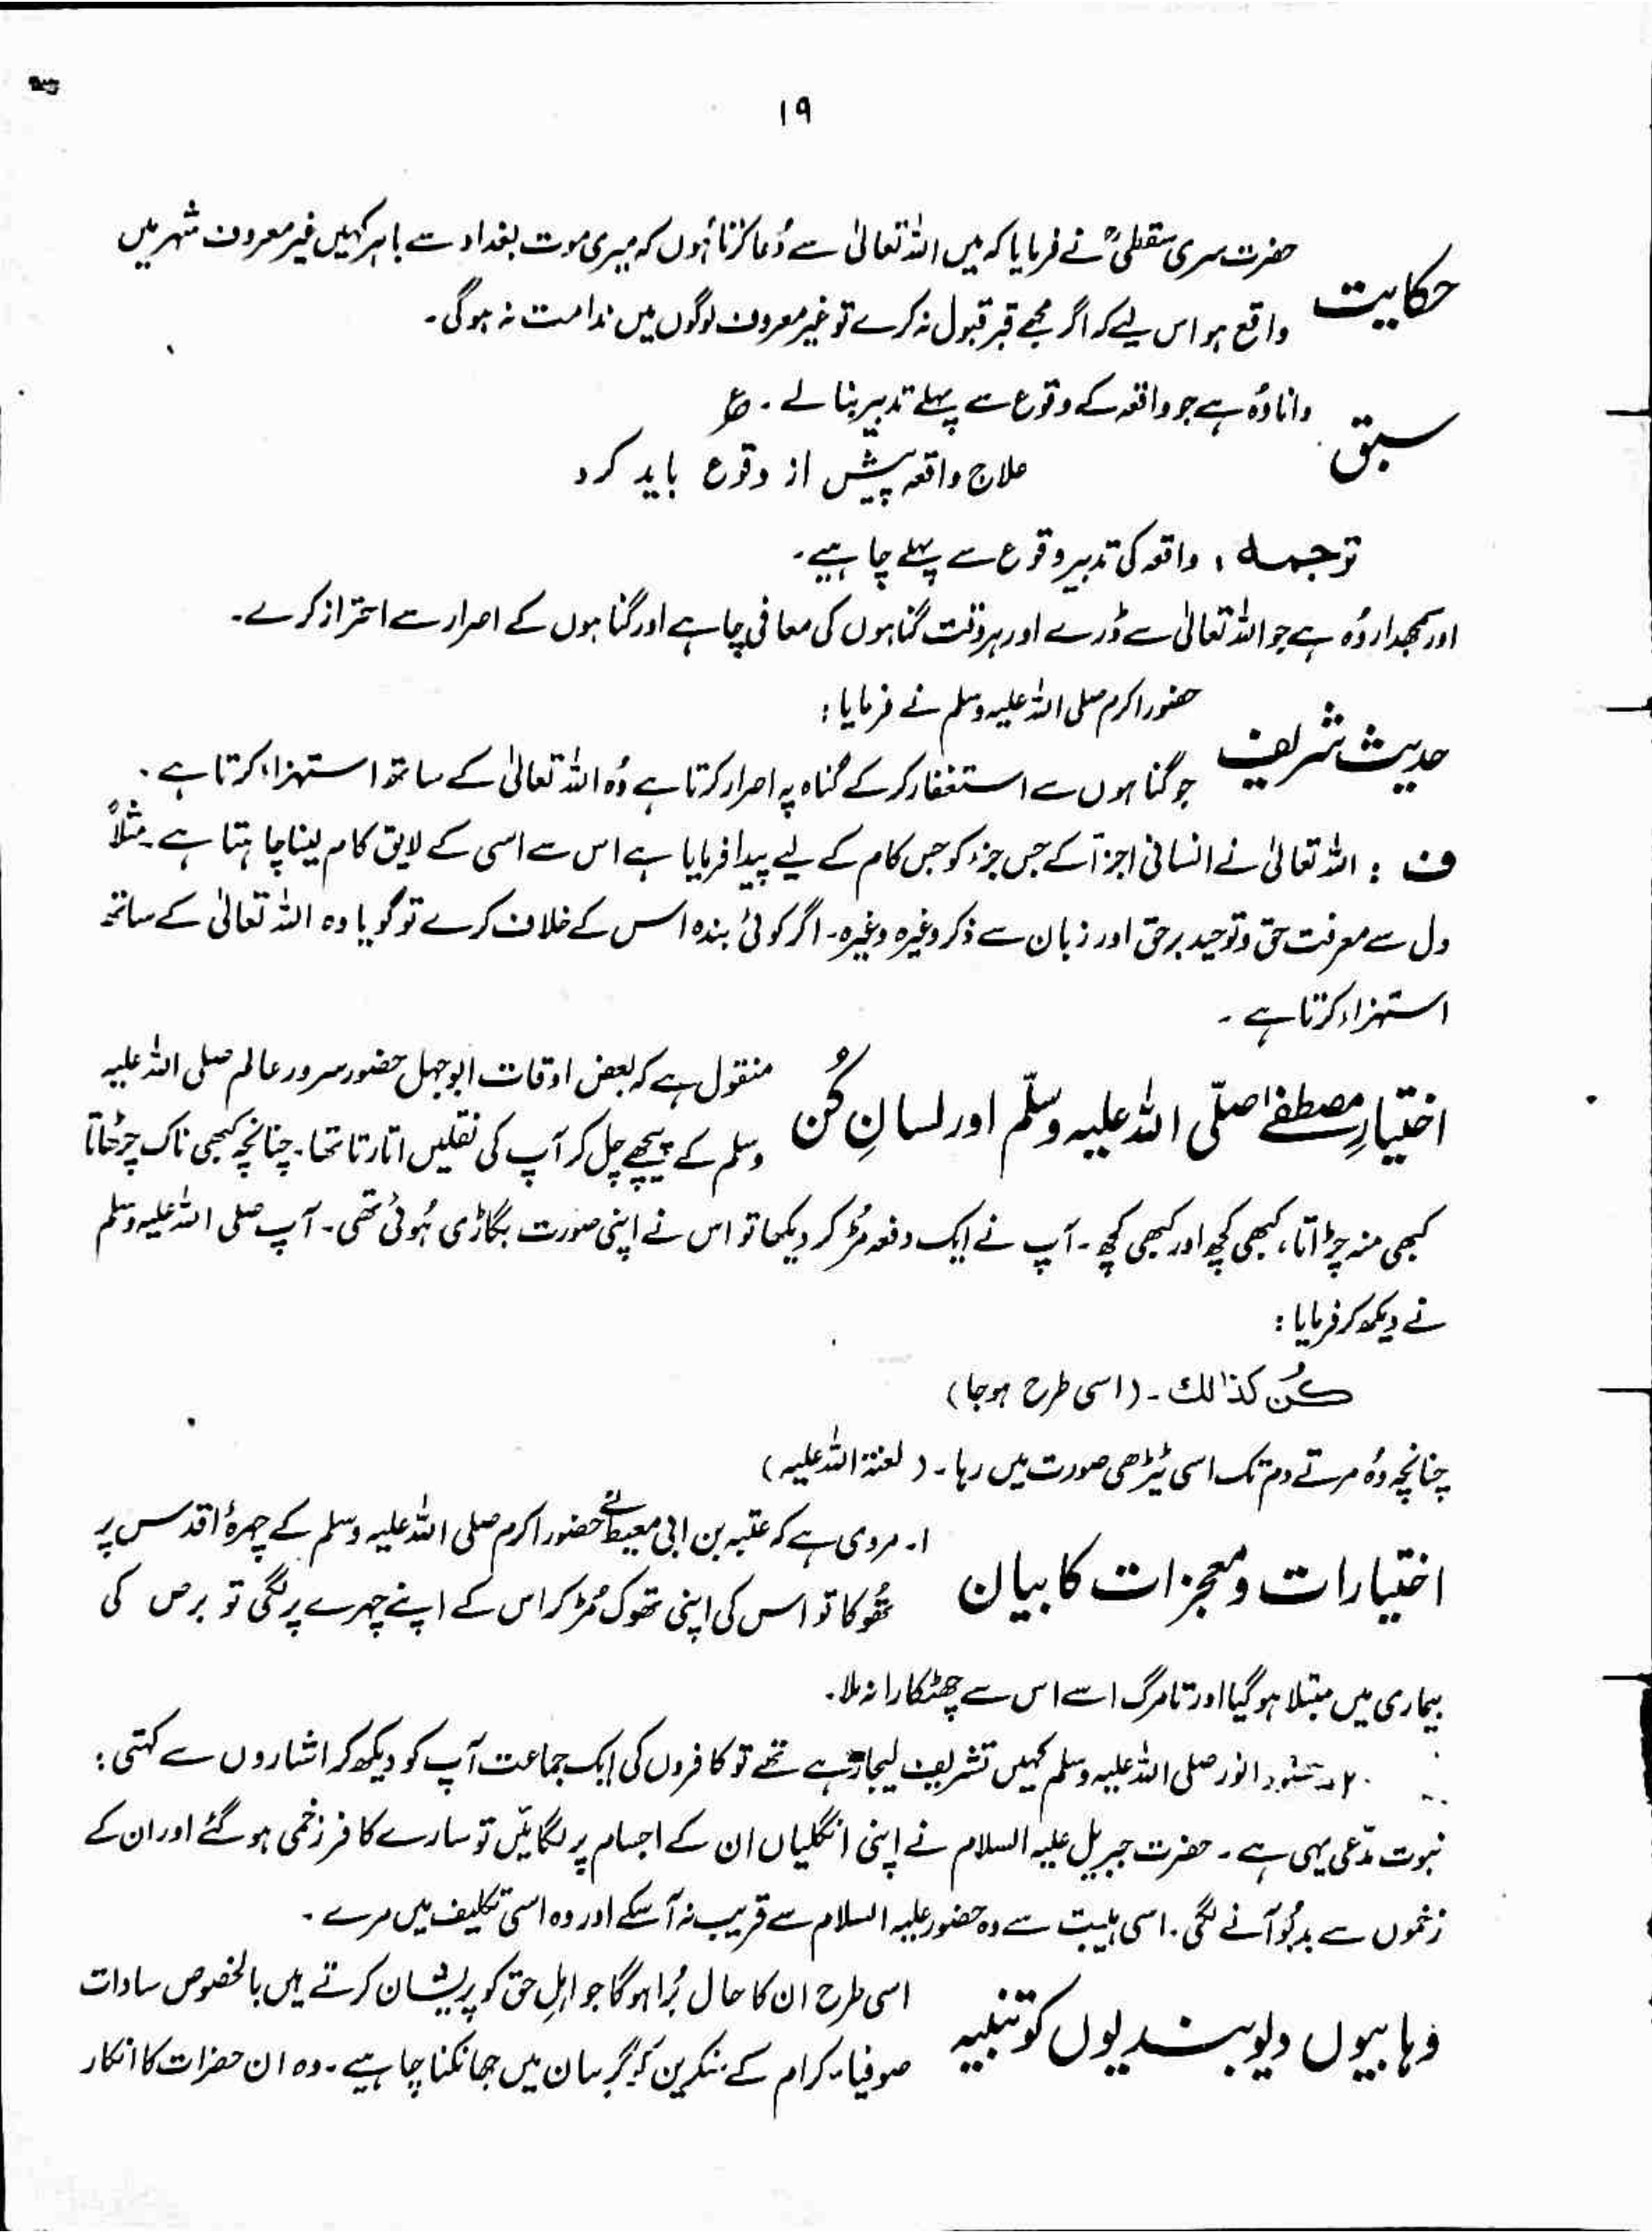 ۱۹
حکایت حضرت سری سقطیؒ نے فرمایا کہ میں اللہ تعالیٰ سے دُعا کرتا ہُوں کہ میری موت بغداد سے باہر کہیں غیر معروف شہر میں
واقع ہو اس لیے کہ اگر مجھے قبر قبول نہ کرے تو غیر معروف لوگوں میں ندامت نہ ہوگی۔
سبق دانا وُہ ہے جو واقعہ کے وقوع سے پہلے تدبیر بنا لے۔ ع
علاج واقعہ پیش از وقوع باید کرد
توجمہ : واقعہ کی تدبیر وقوع سے پہلے چاہیے۔
اور سمجھدار وُہ ہے جو اللہ تعالیٰ سے ڈرے اور ہر وقت گناہوں کی معافی چاہے اور گناہوں کے اصرار سے احتراز کرے۔
حدیث شریف حضور اکرم صلی اللہ علیہ وسلم نے فرمایا :
جو گناہوں سے استغفار کرکے گناہ پہ اصرار کرتا ہے وُہ اللہ تعالیٰ کے ساتھ استہزاء کرتا ہے۔
ف : اللہ تعالیٰ نے انسانی اجزآ کے جس جزء کو جس کام کے لیے پیدا فرمایا ہے اس سے اسی کے لایق کام لینا چاہتا ہے۔ مثلاً
دل سے معرفت حق و توحید برحق اور زبان سے ذکر وغیرہ وغیرہ۔ اگر کوئی بندہ اس کے خلاف کرے تو گویا وہ اللہ تعالیٰ کے ساتھ
استہزاء کرتا ہے۔
اختیارِ مصطفےٰ صلّی اللہ علیہ وسلّم اور لسانِ کُن منقول ہے کہ بعض اوقات ابوجہل حضور سرور عالم صلی اللہ علیہ
وسلم کے پیچھے چل کر آپ کی نقلیں اتارتا تھا۔ چنانچہ کبھی ناک چڑھاتا
کبھی منہ چڑاتا، کبھی کچھ اور کبھی کچھ۔ آپ نے ایک دفعہ مُڑ کر دیکھا تو اس نے اپنی صورت بگاڑی ہُوئی تھی۔ آپ صلی اللہ علیہ وسلم
نے دیکھ کر فرمایا :
کُن کذٰلک۔ (اسی طرح ہوجا)
چنانچہ وُہ مرتے دم تک اسی ٹیڑھی صورت میں رہا۔ (لعنۃ اللہ علیہ)
اختیارات و معجزات کا بیان ۱۔ مروی ہے کہ عقبہ بن ابی معیط نے حضور اکرم صلی اللہ علیہ وسلم کے چہرۂ اقدس پر
تھُوکا تو اس کی اپنی تھوک مُڑ کر اس کے اپنے چہرے پر لگی تو برص کی
بیماری میں مبتلا ہوگیا اور تامرگ اسے اس سے چھٹکارا نہ ملا۔
۲۔ حضور انور صلی اللہ علیہ وسلم کہیں تشریف لیجا رہے تھے تو کافروں کی ایک جماعت آپ کو دیکھ کر اشاروں سے کہتی :
نبوت مدّعی یہی ہے۔ حضرت جبریل علیہ السلام نے اپنی انگلیاں ان کے اجسام پر لگائیں تو سارے کافر زخمی ہو گئے اور ان کے
زخموں سے بدبُو آنے لگی۔ اسی ہیبت سے وہ حضور علیہ السلام سے قریب نہ آسکے اور وہ اسی تکلیف میں مرے۔
وہابیوں دیوبندیوں کو تنبیہ اسی طرح ان کا حال بُرا ہوگا جو اہلِ حق کو پریشان کرتے ہیں بالخصوص سادات
صوفیاء کرام کے منکرین کو گریبان میں جھانکنا چاہیے۔ وہ ان حضرات کا انکار